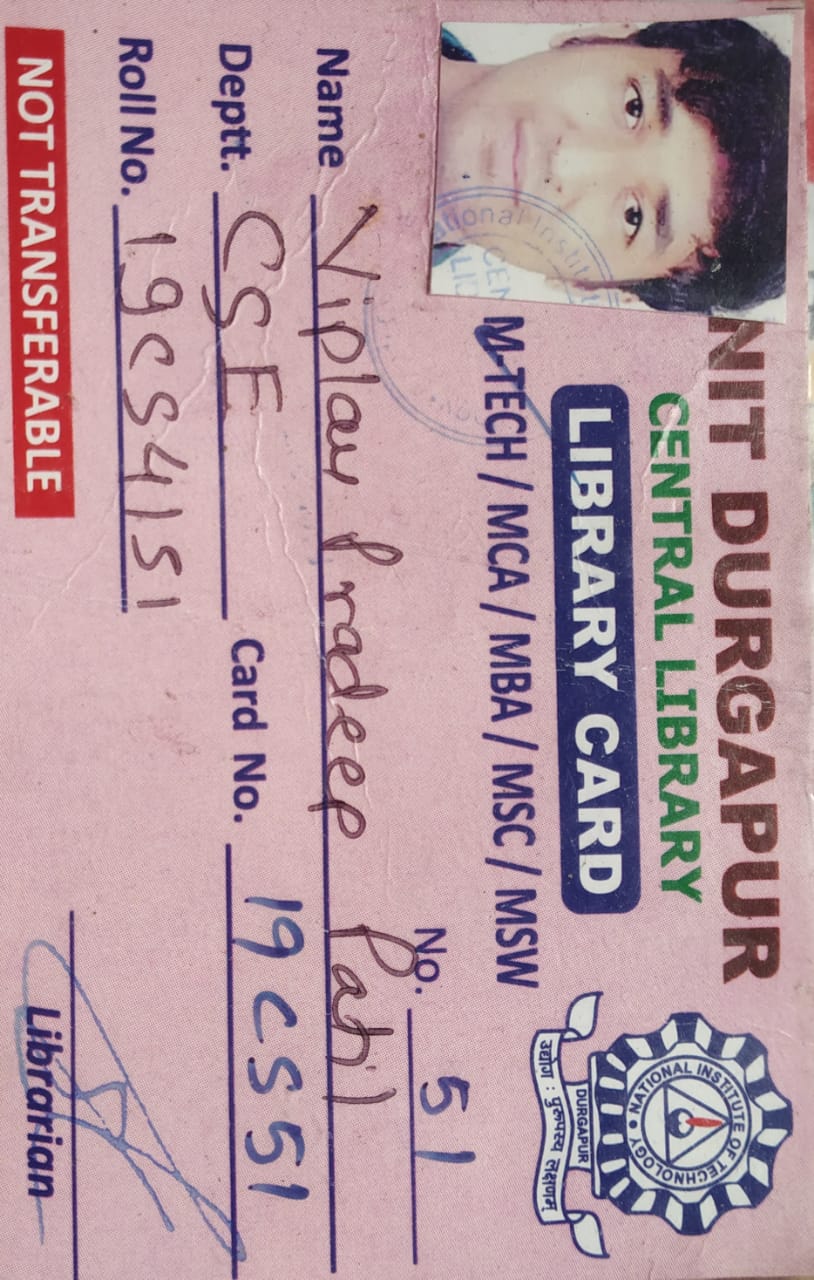 NIT DURGAPUR
CENTRAL LIBRARY
LIBRARY CARD
NATIONAL INSTITUTE OF TECHNOLOGY
DURGAPUR
उद्योग : पुरूपस्य लक्षणम्
M-TECH / MCA / MBA / MSC / MSW
No. 51
Name Viplav Pradeep Patil
Deptt. CSE Card No. 19CS51
Roll No. 19CS4151
Librarian
NOT TRANSFERABLE